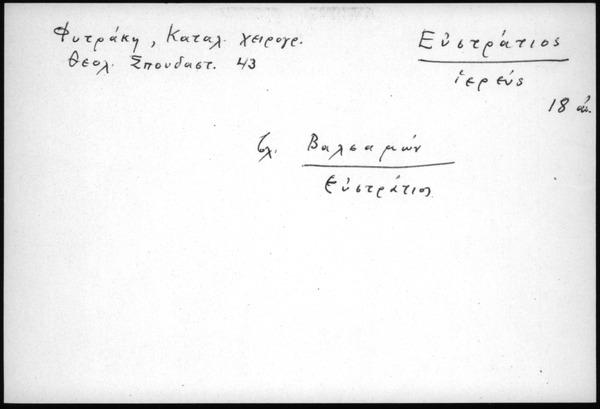 Φυτράκη, Καταλ. χειρογρ.
Θεολ. Σπουδαστ. 43
Εὐστράτιος
ἱερεύς
18 αἰ.
βλ. Βαλσαμών
Εὐστράτιος